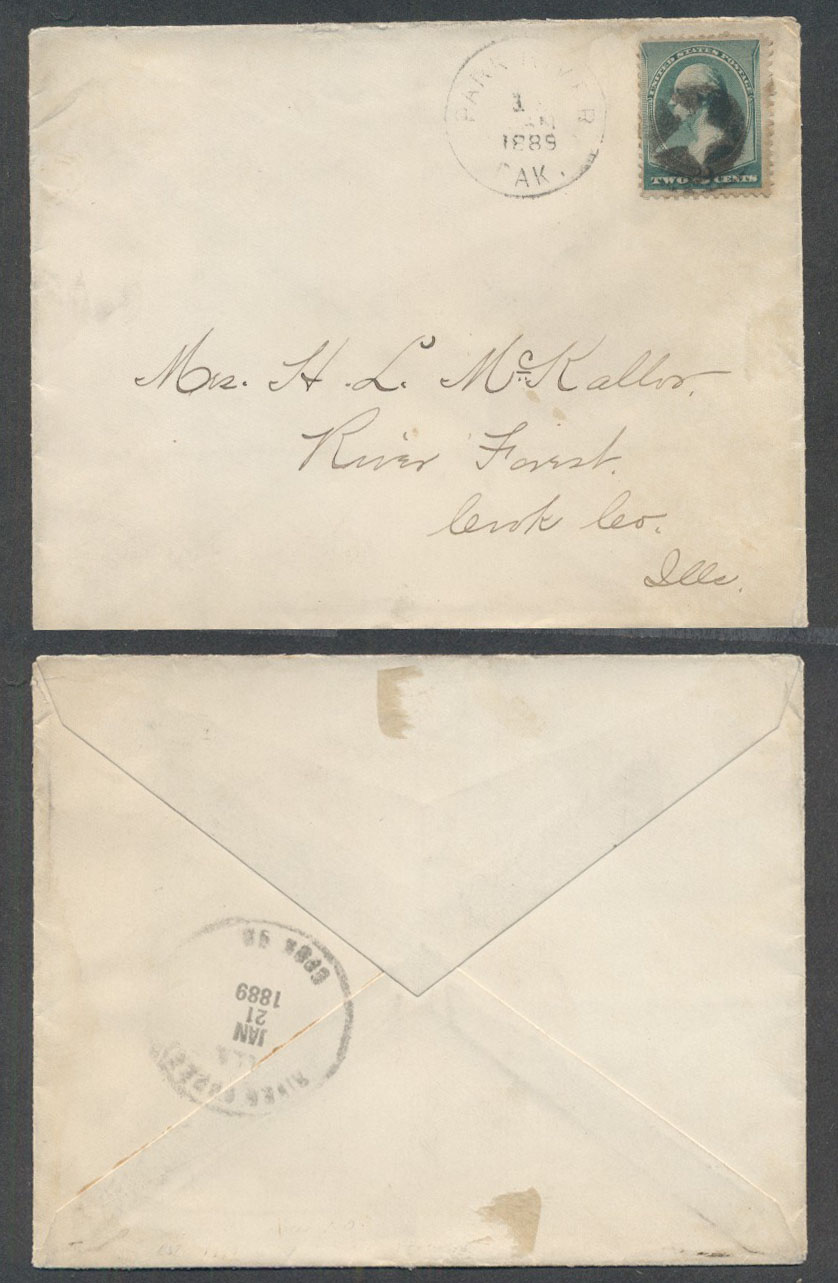 PARK RIVER
1889
DAK.
UNITED STATES POSTAGE
TWO 2 CENTS
Mrs. H. L. McKallor.
River Forest.
Cook Co.
Ills.
RIVER FOREST
ILL
JAN
21
1889
COOK CO